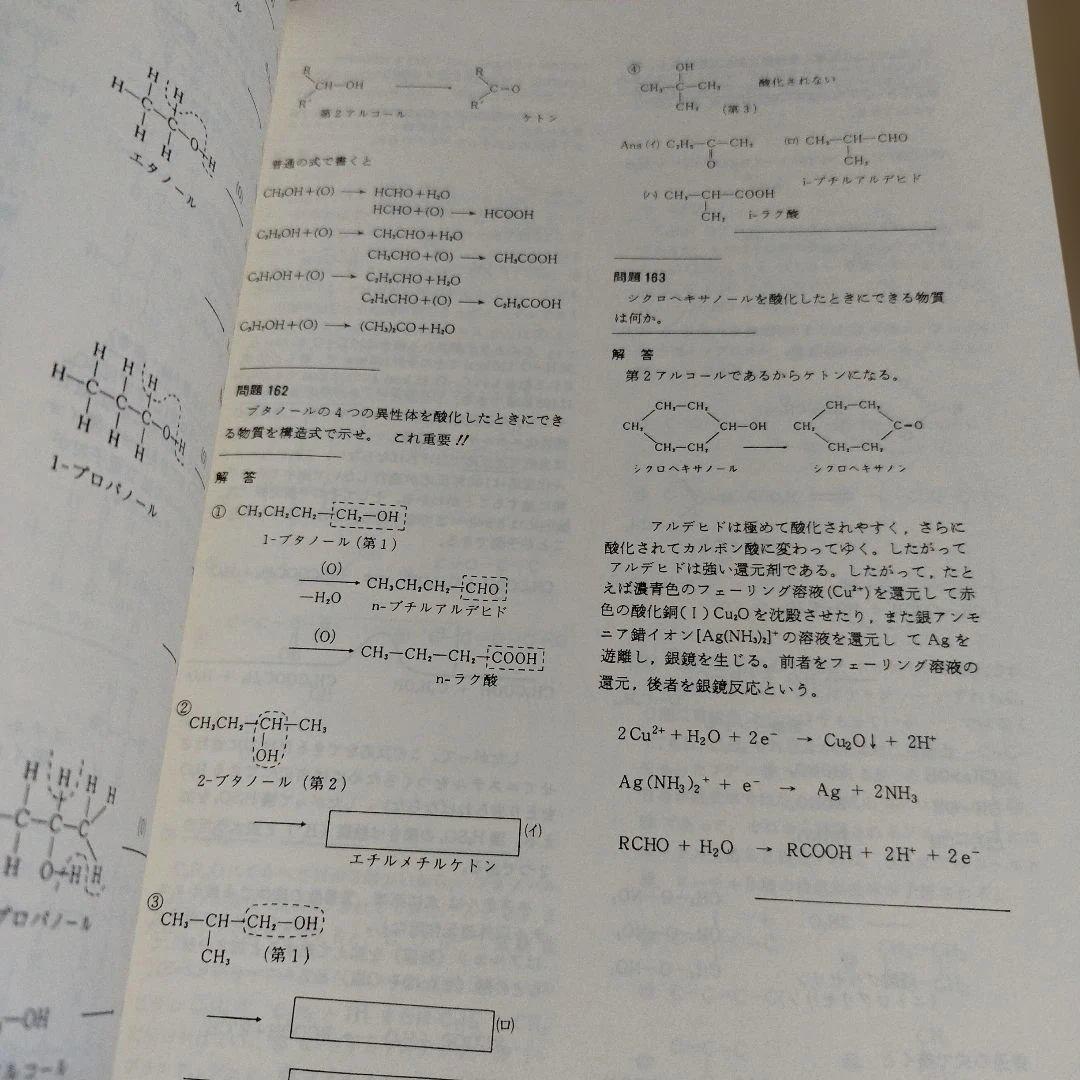 エタノール
1-プロパノール
プロパノール
R
CH—OH → C=O
R'
第2アルコール ケトン
普通の式で書くと
CH₃OH+(O) → HCHO+H₂O
HCHO+(O) → HCOOH
C₂H₅OH+(O) → CH₃CHO+H₂O
CH₃CHO+(O) → CH₃COOH
C₃H₇OH+(O) → C₂H₅CHO+H₂O
C₂H₅CHO+(O) → C₂H₅COOH
C₃H₇OH+(O) → (CH₃)₂CO+H₂O
問題 162
ブタノールの4つの異性体を酸化したときにでき
る物質を構造式で示せ。 これ重要!!
解 答
① CH₃CH₂CH₂—CH₂—OH
1-ブタノール(第1)
(O)
—H₂O
CH₃CH₂CH₂—CHO
n-ブチルアルデヒド
(O)
CH₃—CH₂—CH₂—COOH
n-ラク酸
②
CH₃CH₂—CH—CH₃
OH
2-ブタノール(第2)
→ (イ)
エチルメチルケトン
③
CH₃—CH—CH₂—OH
CH₃ (第1)
→ (ロ)
④ OH
CH₃—C—CH₃ 酸化されない
CH₃ (第3)
Ans (イ) C₂H₅—C—CH₃ (ロ) CH₃—CH—CHO
O CH₃
i-ブチルアルデヒド
(ハ) CH₃—CH—COOH
CH₃ i-ラク酸
問題 163
シクロヘキサノールを酸化したときにできる物質
は何か。
解 答
第2アルコールであるからケトンになる。
CH₂—CH₂ CH₂—CH₂
CH₂ CH—OH → CH₂ C=O
CH₂—CH₂ CH₂—CH₂
シクロヘキサノール シクロヘキサノン
アルデヒドは極めて酸化されやすく，さらに
酸化されてカルボン酸に変わってゆく。したがって
アルデヒドは強い還元剤である。したがって，たと
えば濃青色のフェーリング溶液(Cu²⁺)を還元して赤
色の酸化銅(Ⅰ)Cu₂Oを沈殿させたり，また銀アンモ
ニア錯イオン[Ag(NH₃)₂]⁺の溶液を還元し てAgを
遊離し，銀鏡を生じる。前者をフェーリング溶液の
還元，後者を銀鏡反応という。
2Cu²⁺+H₂O + 2e⁻ → Cu₂O↓ + 2H⁺
Ag(NH₃)₂⁺ + e⁻ → Ag + 2NH₃
RCHO + H₂O → RCOOH + 2H⁺ + 2e⁻